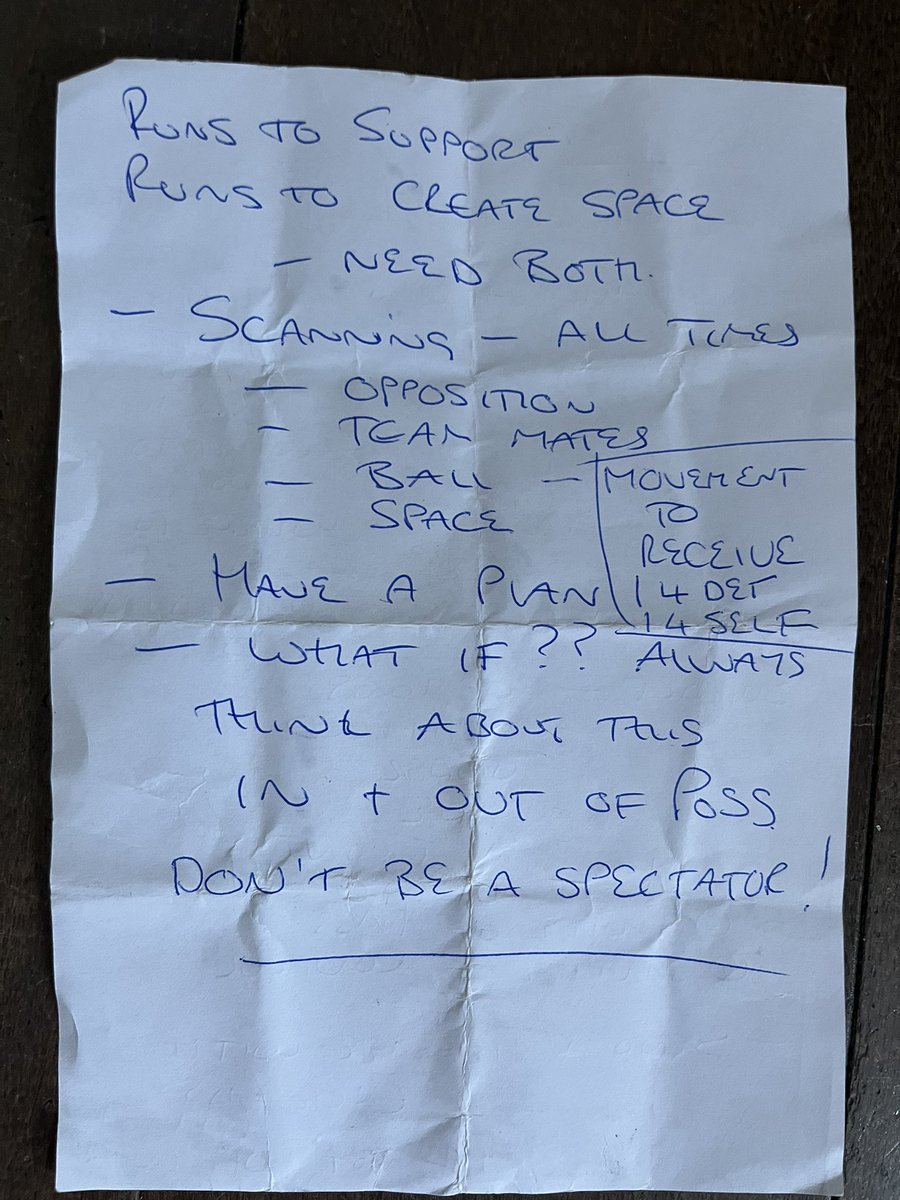 RUNS TO SUPPORT
RUNS TO CREATE SPACE
- NEED BOTH.
- SCANNING - ALL TIMES
- OPPOSITION
- TEAM MATES
- BALL -
- SPACE
MOVEMENT
TO
RECEIVE
1 4 DEF
1 4 SELF
- HAVE A PLAN
- WHAT IF?? ALWAYS
THINK ABOUT THIS
IN + OUT OF POSS
DON'T BE A SPECTATOR!